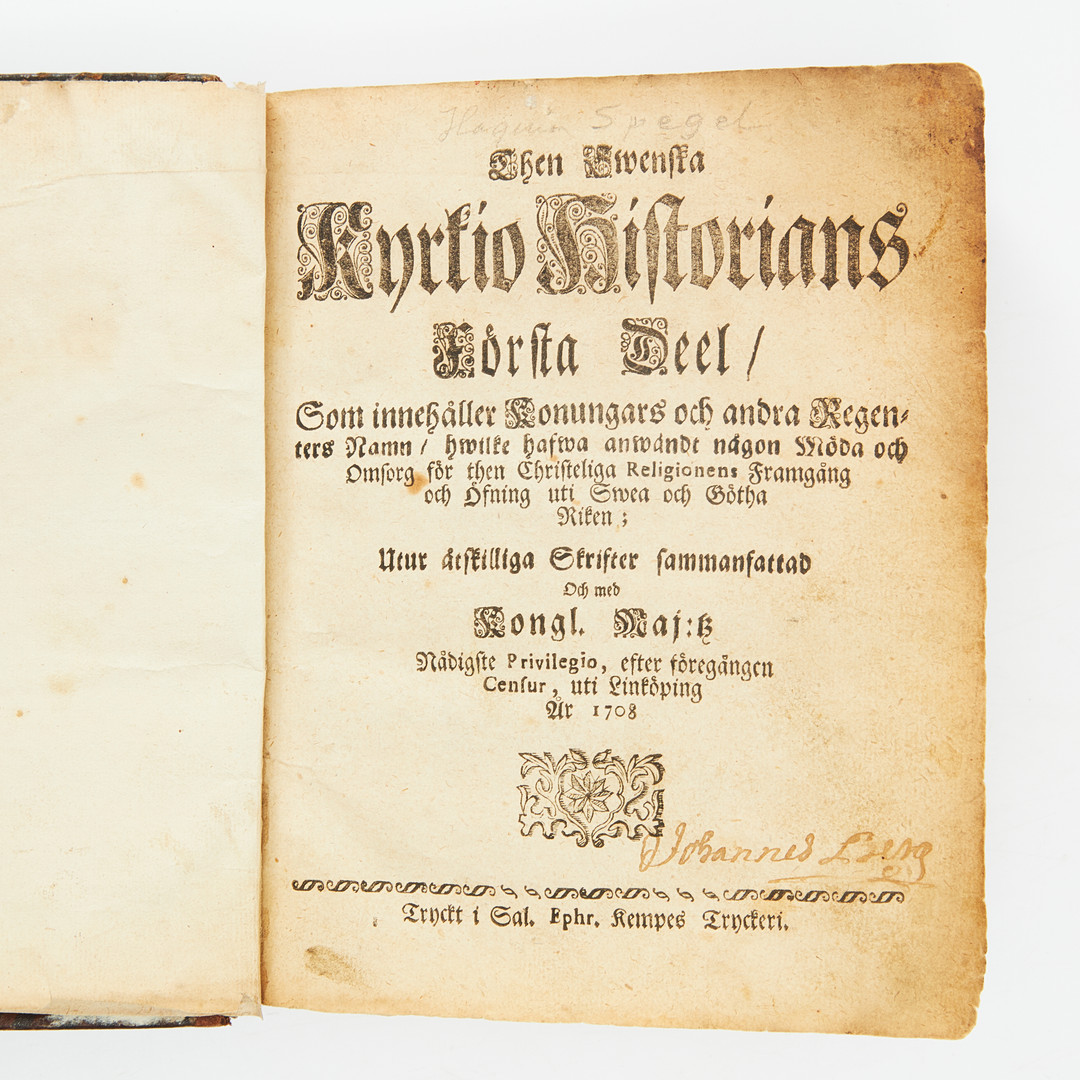 Haquin Spegel
Then Swenska
Kyrkio Historians
Första Deel /
Som innehåller Konungars och andra Regen-
ters Namn / hwilke hafwa anwändt någon Möda och
Omsorg för then Christeliga Religionens Framgång
och Öfning uti Swea och Götha
Riken ;
Utur åtskilliga Skrifter sammanfattad
Och med
Kongl. Maj:tz
Nådigste Privilegio, efter föregången
Censur, uti Linköping
År 1708
Johannes
Tryckt i Sal. Ephr. Kempes Tryckeri.